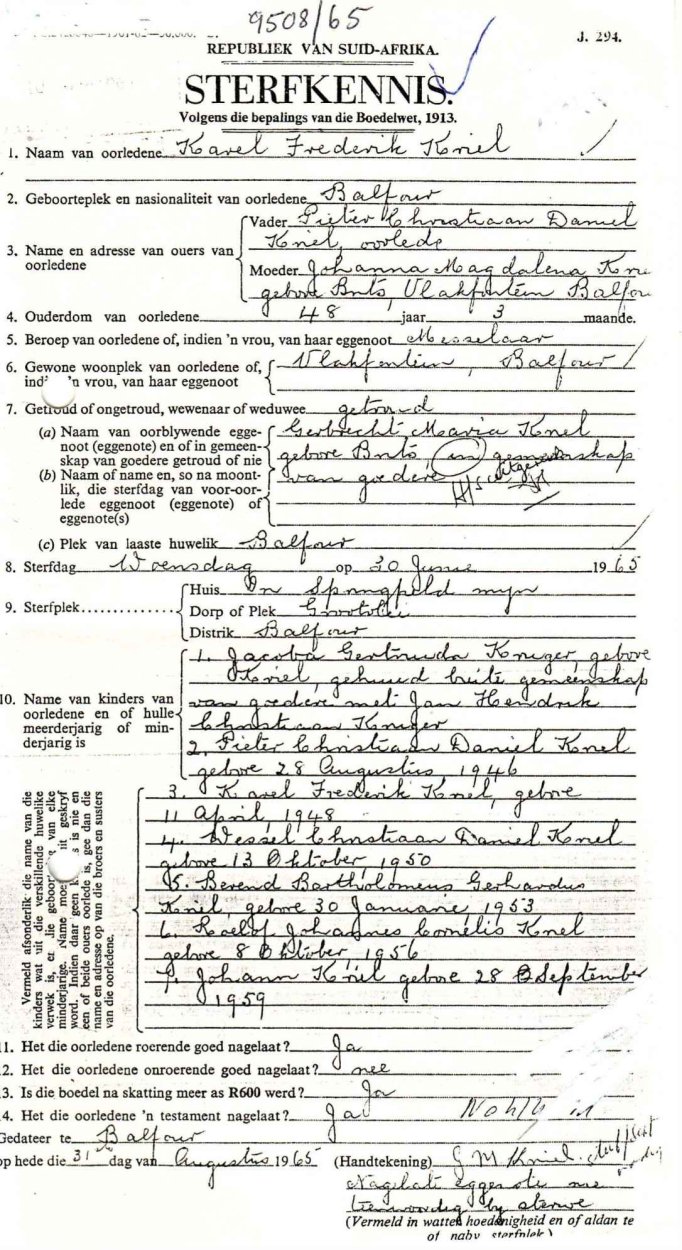 9508/65
J. 294.
REPUBLIEK VAN SUID-AFRIKA.
STERFKENNIS.
Volgens die bepalings van die Boedelwet, 1913.
1. Naam van oorledene Karel Frederik Kriel
2. Geboorteplek en nasionaliteit van oorledene Balfour
3. Name en adresse van ouers van oorledene
Vader Pieter Christiaan Daniel
Kriel, oorlede
Moeder Johanna Magdalena Krie
gebore Brits, Vlakfontein Balfou
4. Ouderdom van oorledene 48 jaar 3 maande.
5. Beroep van oorledene of, indien 'n vrou, van haar eggenoot Messelaar
6. Gewone woonplek van oorledene of, ind 'n vrou, van haar eggenoot
Vlakfontein, Balfour
7. Getroud of ongetroud, wewenaar of weduwee getroud
(a) Naam van oorblywende eggenoot (eggenote) en of in gemeenskap van goedere getroud of nie
Gerbrecht Maria Kriel
gebore Brits, in gemeenskap
van goedere
(b) Naam of name en, so na moontlik, die sterfdag van voor-oorlede eggenoot (eggenote) of eggenote(s)
(c) Plek van laaste huwelik Balfour
8. Sterfdag Woensdag op 30 Junie 1965
9. Sterfplek
Huis In Springfield myn
Dorp of Plek Grootvlei
Distrik Balfour
10. Name van kinders van oorledene en of hulle meerderjarig of minderjarig is
1. Jacoba Gertruida Kruger, gebore
Kriel, gehuud buite gemeenskap
van goedere met Jan Hendrik
Christiaan Kruger
2. Pieter Christiaan Daniel Kriel
gebore 28 Augustus 1946
3. Karel Frederik Kriel, gebore
11 April, 1948
4. Wessel Christiaan Daniel Kriel
gebore 13 Oktober, 1950
5. Berend Bartholomeus Gerhardus
Kriel, gebore 30 Januarie, 1953
6. Roelof Johannes Cornelis Kriel
gebore 8 Oktober, 1956
7. Johann Kriel gebore 28 September
1959
Vermeld afsonderlik die name van die
kinders wat uit die verskillende huwelike
verwek is, die geboor van elke
minderjarige. Name moe uit geskryf
word. Indien daar geen k s is nie en
een of beide ouers oorlede is, gee dan die
name en adresse op van die broers en susters
van die oorledene.
11. Het die oorledene roerende goed nagelaat? Ja
2. Het die oorledene onroerende goed nagelaat? nee
3. Is die boedel na skatting meer as R600 werd? Ja
4. Het die oorledene 'n testament nagelaat? Ja
Gedateer te Balfour
op hede die 31 dag van Augustus 1965 (Handtekening) G M Kriel
Nagelate eggenote nie
teenwoordig by sterwe
(Vermeld in watter hoedanigheid en of aldan te
of naby sterfplek)